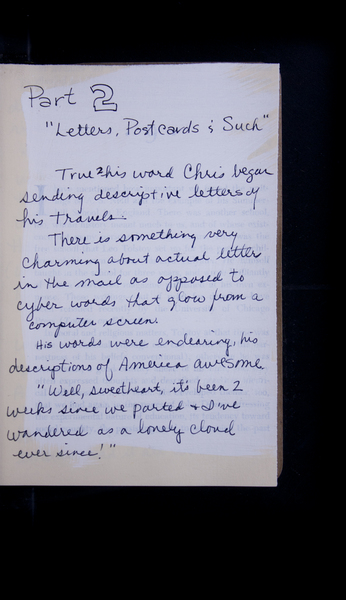 Part 2
"Letters, Postcards & Such"
True 2 his word Chris began
sending descriptive letters of
his travels.
There is something very
charming about actual letter
in the mail as opposed to
cyber words that glow from a
computer screen.
His words were endearing, his
descriptions of America awesome.
"Well, sweetheart, it's been 2
weeks since we parted & I've
wandered as a lonely cloud
ever since!"